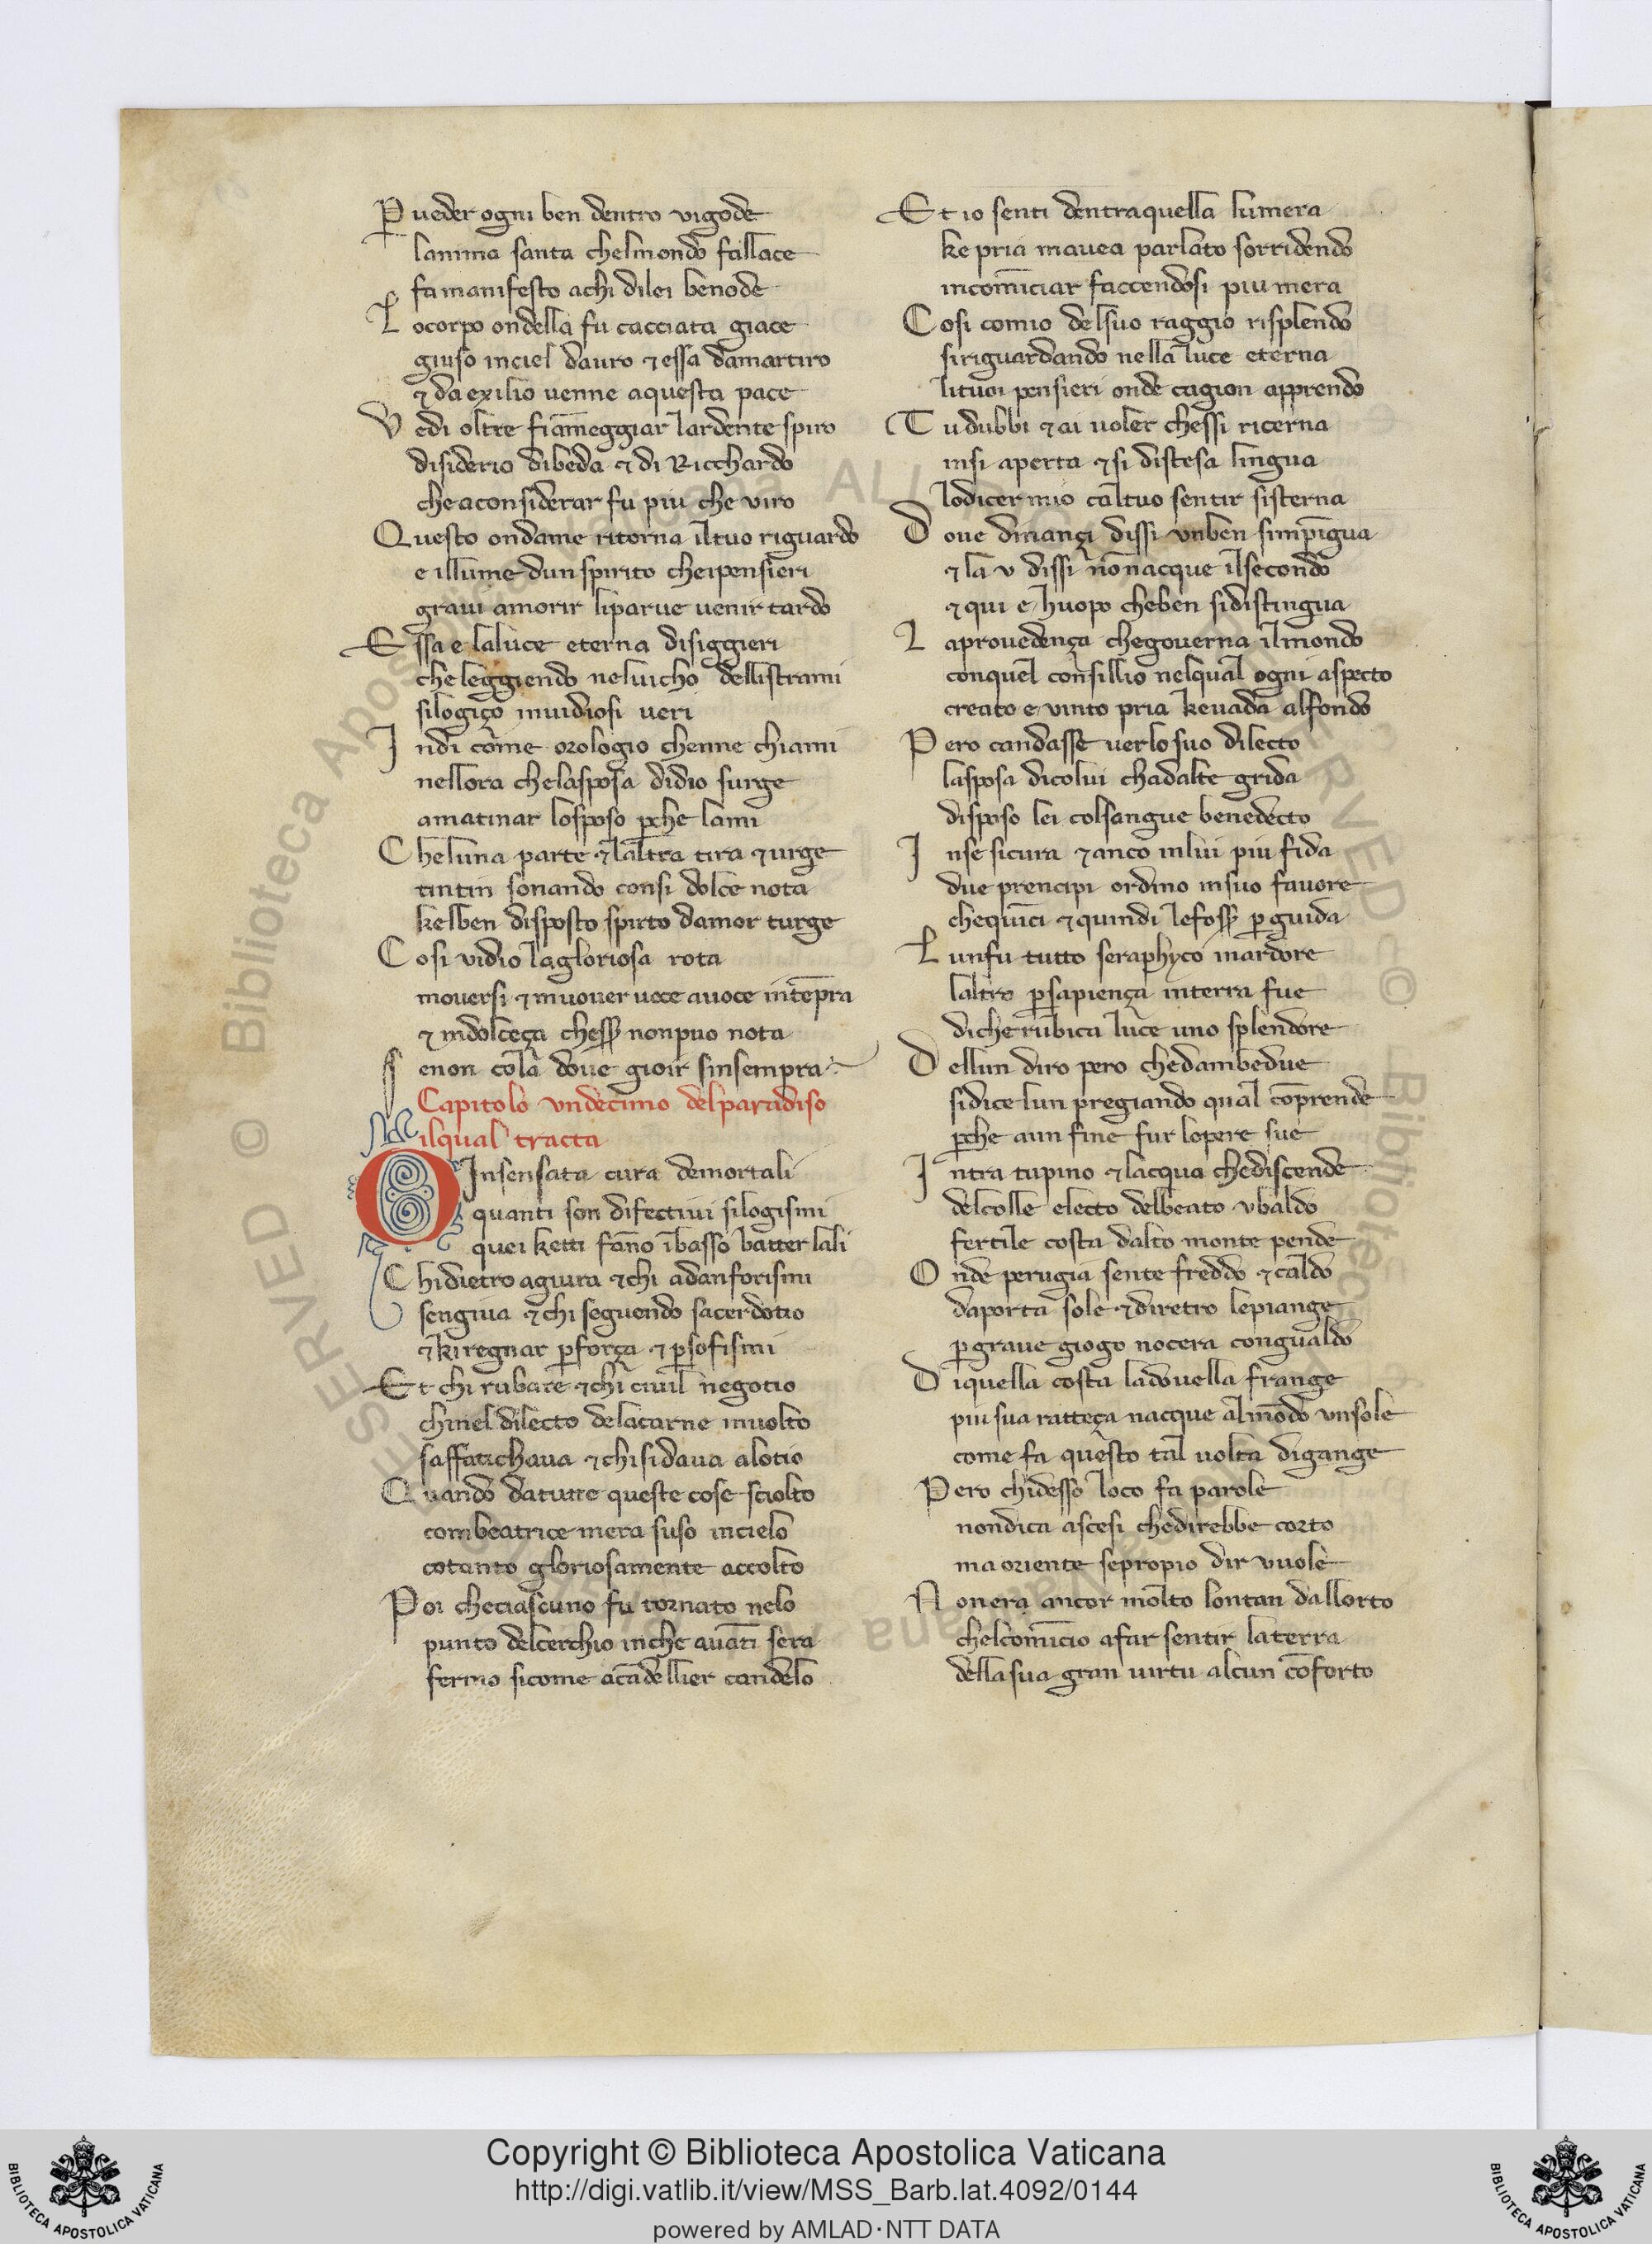 P ueder ogni ben dentro vigode
lanima santa chelmondo fallace
fa manifesto achi dilei benode
L ocorpo ondella fu cacciata giace
giuso inciel dauro ⁊ essa damartiro
⁊ da exilio uenne aquesta pace
V edi oltre fiāmeggiar lardente spiro
disiderio dibeda ⁊ di Ricchardo
che aconsiderar fu piu che viro
Questo ondame ritorna iltuo riguardo
e illume dun spirito cheipensieri
graui amorir liparue uenir tardo
E ssa e laluce eterna disiggieri
che leggiendo neluicho dellistrami
silogiço inuidiosi ueri
I ndi come orologio chenne chiami
nellora chelasposa didio surge
amatinar losposo ꝑche lami
C heluna parte ⁊ laltra tira ⁊ urge
tintin sonando consi dolce nota
kelben disposto spirto damor turge
C osi vidio lagloriosa rota
mouersi ⁊ muouer uoce auoce intēpra
⁊ indolceça chess nonpuo nota
S enon cola doue gioir sinsempra
Capitolo vndecimo delparadiso
ilqual tracta
O Insensata cura demortali
quanti son difectiui silogismi
quei ketti fāno ībasso batter lali
C hidietro agiura ⁊ chi adanforismi
sengiua ⁊ chi seguendo sacerdotio
⁊ ki regnar ꝑforça ⁊ ꝑsofismi
E t chi rubare ⁊ chi ciuil negotio
chinel dilecto delacarne inuolto
saffatichaua ⁊ chisidaua alotio
Q uando datutte queste cose sciolto
combeatrice mera suso incielo
cotanto gloriosamente accolto
P oi checiascuno fu tornato nelo
punto delcerchio inche auāti sera
fermo sicome acādellier candelo
E t io senti dentraquella lumera
ke pria mauea parlato sorridendo
incomīciar faccendosi piu mera
C osi comio delsuo raggio risplendo
siriguardando nella luce eterna
lituoi pensieri onde cagion apprendo
T u dubbi ⁊ ai uoler chessi ricerna
insi aperta ⁊ si distesa lingua
lodicer mio caltuo sentir sisterna
D oue dinançi dissi vnben simpīgua
⁊ la v dissi nōnacque ilsecondo
⁊ qui e huopo cheben sidistingua
L aprouedença chegouerna ilmondo
conquel consillio nelqual ogni aspecto
creato e vinto pria keuada alfondo
P ero candasse uerlo suo dilecto
lasposa dicolui chadalte grida
disposo lei colsangue benedecto
I nse sicura ⁊ anco inlui piu fida
due prencipi ordino insuo fauore
chequīci ⁊ quindi lefoss ꝑ guida
L unfu tutto seraphyco inardore
laltro ꝑsapiença interra fue
dicherubica luce uno splendore
D ellun diro pero chedambedue
sidice lun pregiando qual cōprende
ꝑche aun fine fur lopere sue
I ntra tupino ⁊ lacqua chediscende
delcolle electo delbeato vbaldo
fertile costa dalto monte pende
O nde perugia sente freddo ⁊ caldo
daporta sole ⁊ diretro lepiange
ꝑ graue giogo nocera congualdo
D iquella costa ladouella frange
piu sua ratteça nacque almōdo vnsole
come fa questo tal uolta digange
P ero chidesso loco fa parole
nondica ascesi chedirebbe corto
ma oriente sepropio dir vuole
N onera ancor molto lontan dallorto
chelcomīcio afar sentir laterra
dellasua gran uirtu alcun cōforto
Copyright © Biblioteca Apostolica Vaticana
http://digi.vatlib.it/view/MSS_Barb.lat.4092/0144
powered by AMLAD·NTT DATA
BIBLIOTECA APOSTOLICA VATICANA
BIBLIOTECA APOSTOLICA VATICANA